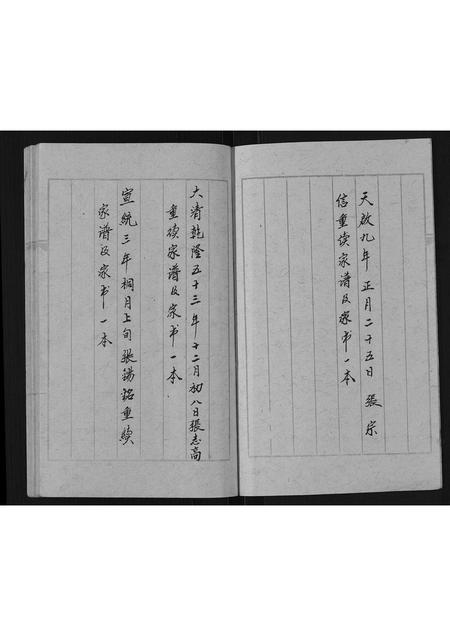 天啟九年 正月二十五日 張宗
信重续家谱及家书一本
大清乾隆五十三年十二月初八日張志高
重续家谱及家书一本
宣統三年桐月上旬張锡铭重續
家谱及家书一本